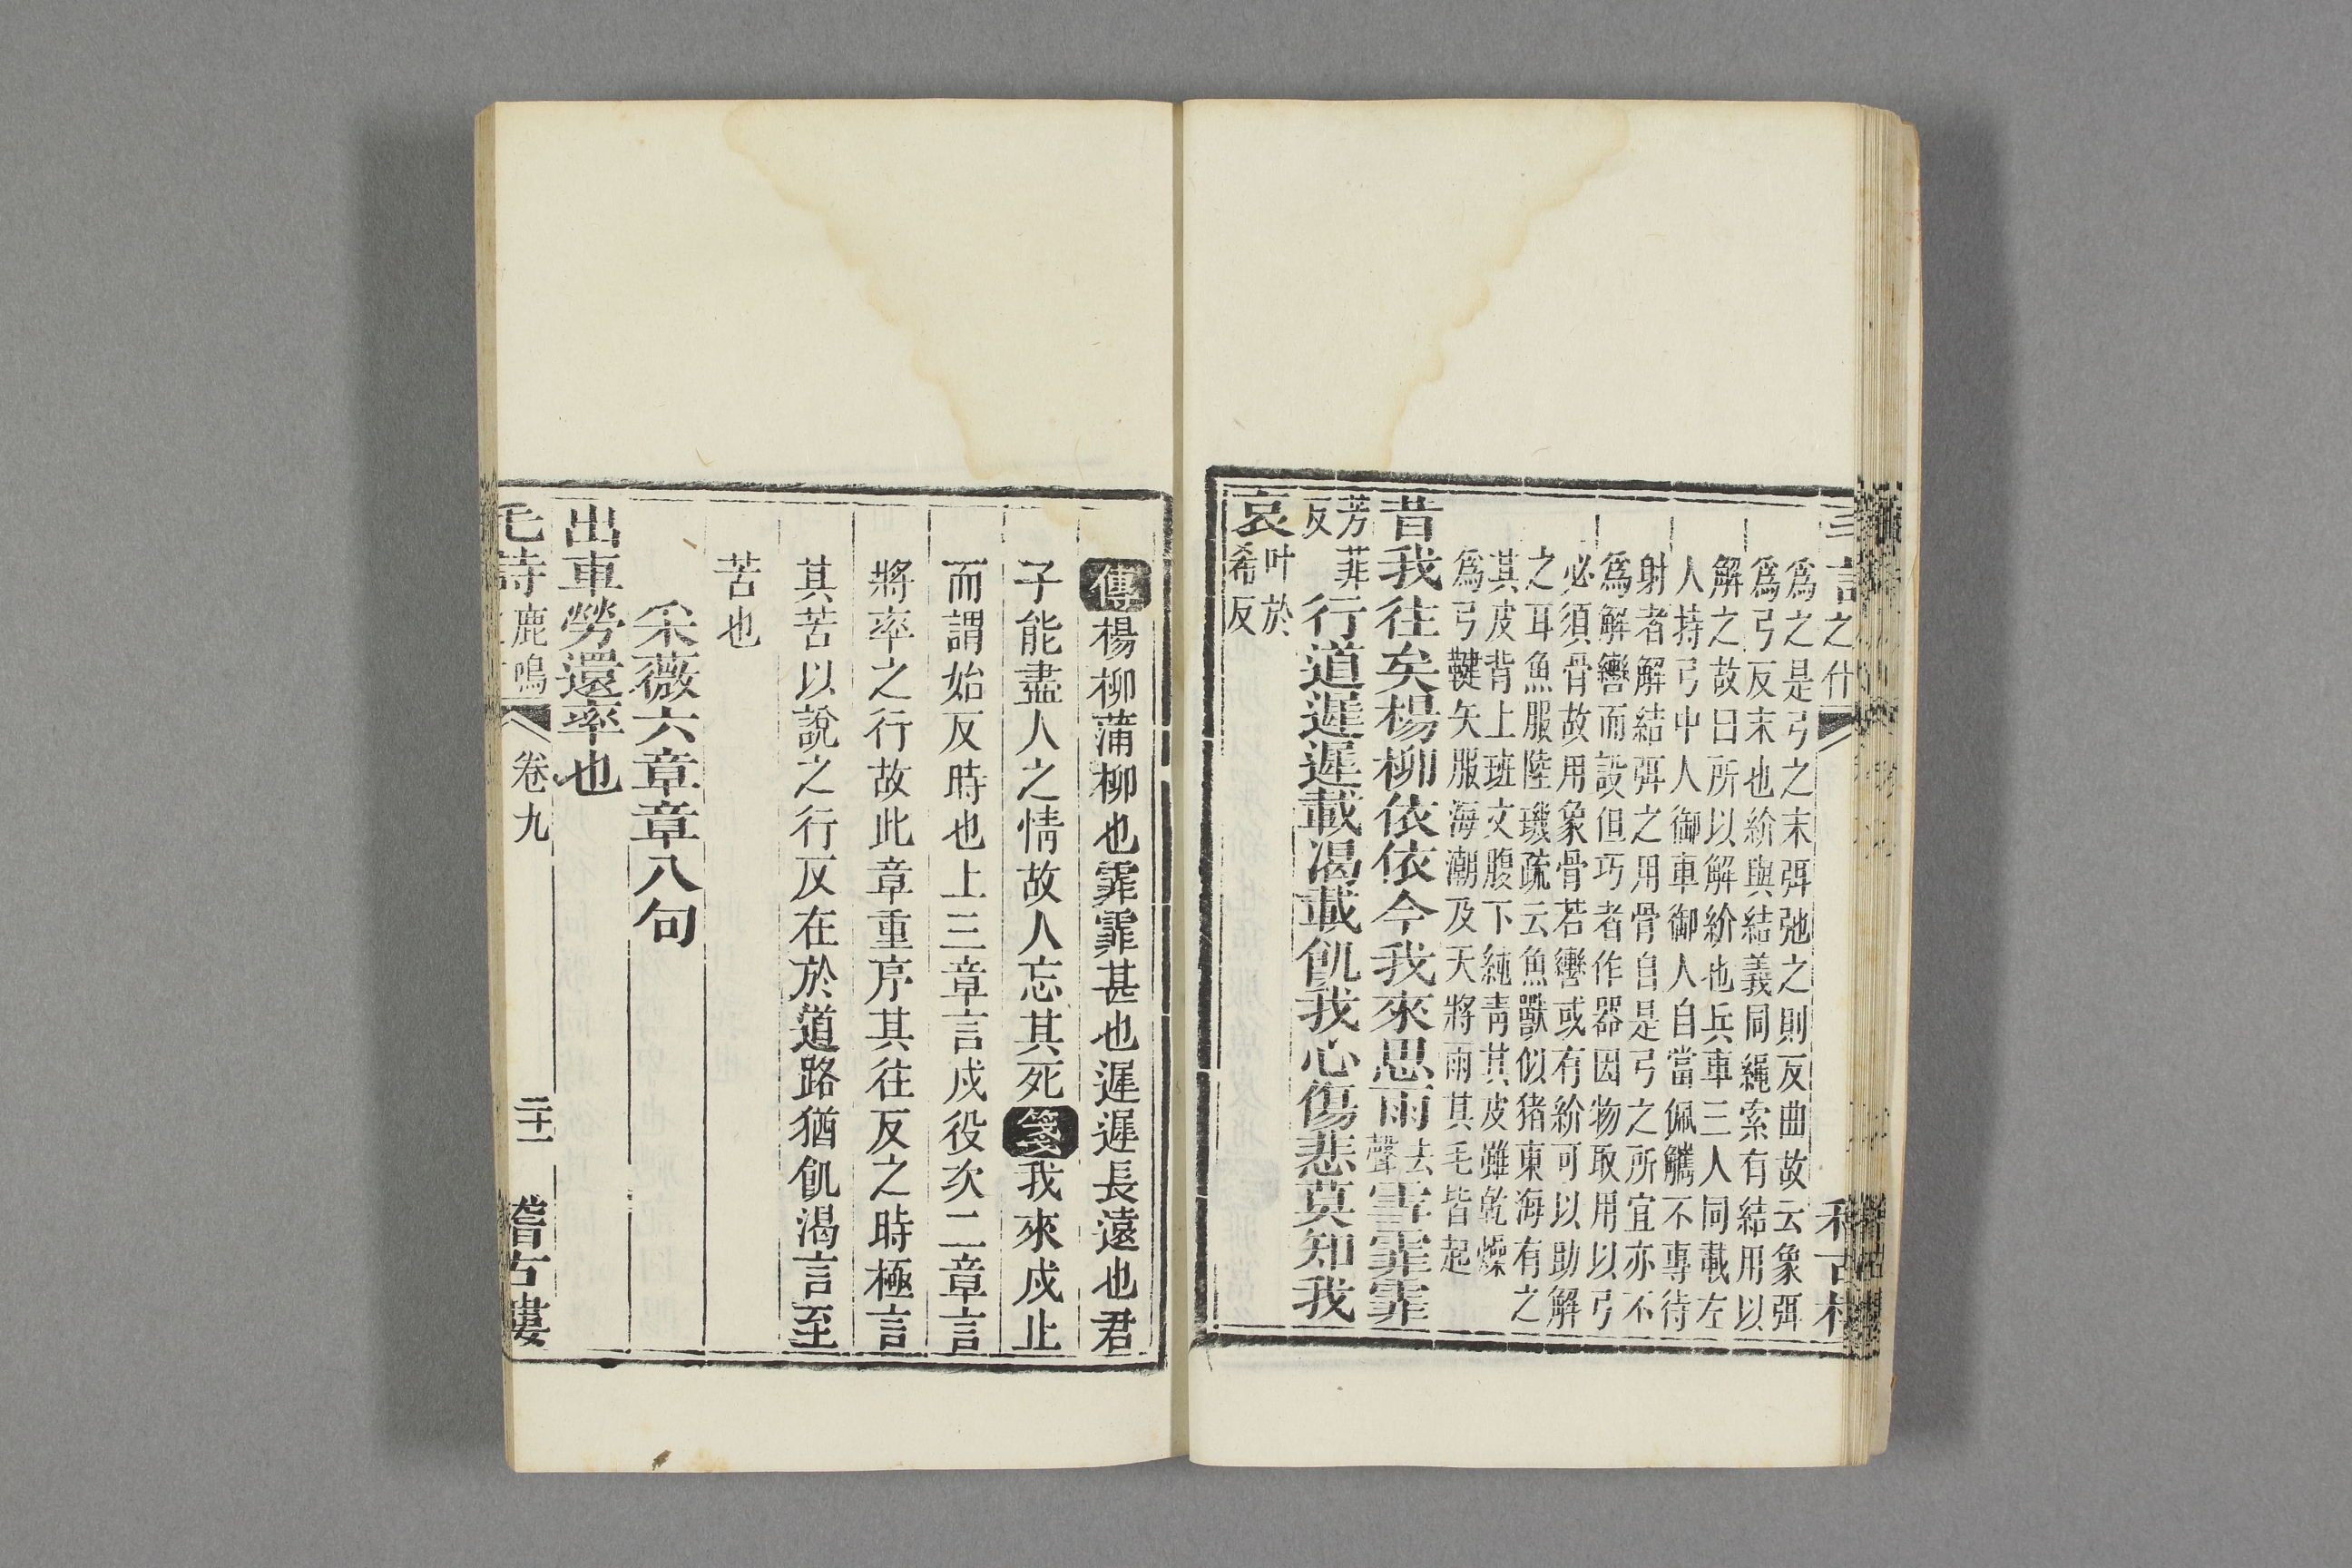 為之是弓之末弭弛之則反曲故云象弭
為弓反末也紛與結義同繩索有結用以
解之故曰所以解紛也兵車三人同載左
人持弓中人御車御人自當佩觿不專待
射者解結弭之用骨自是弓之所宜亦不
為解轡而設但巧者作器因物取用以弓
必須骨故用象骨若轡或有紛可以助解
之耳魚服陸璣疏云魚獸似猪東海有之
其皮背上班文腹下純青其皮雖乾燥
為弓鞬矢服海潮及天將雨其毛皆起
昔我往矣楊柳依依今我來思雨去聲雪霏霏
芳菲反行道遲遲載渴載飢我心傷悲莫知我
哀叶於希反
傳楊柳蒲柳也霏霏甚也遲遲長遠也君
子能盡人之情故人忘其死箋我來戍止
而謂始反時也上三章言戍役次二章言
將率之行故此章重序其往反之時極言
其苦以說之行反在於道路猶飢渴言至
苦也
采薇六章章八句
出車勞還率也
毛詩鹿鳴 卷九 二十一 稽古樓